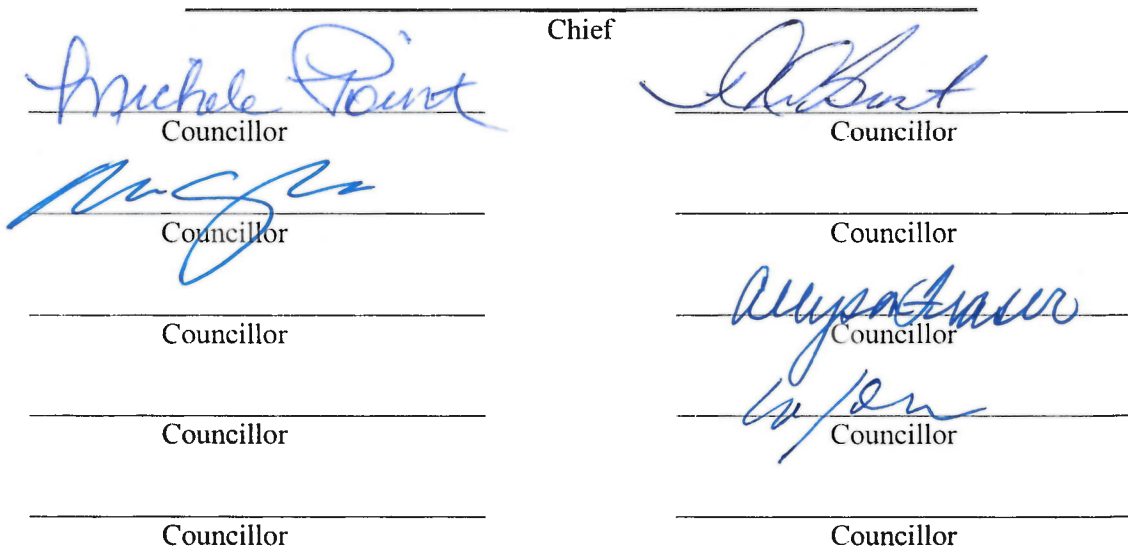 Chief
Michele Point
Councillor Councillor
Councillor Councillor
Allyson Fraser
Councillor Councillor
Councillor Councillor
Councillor Councillor